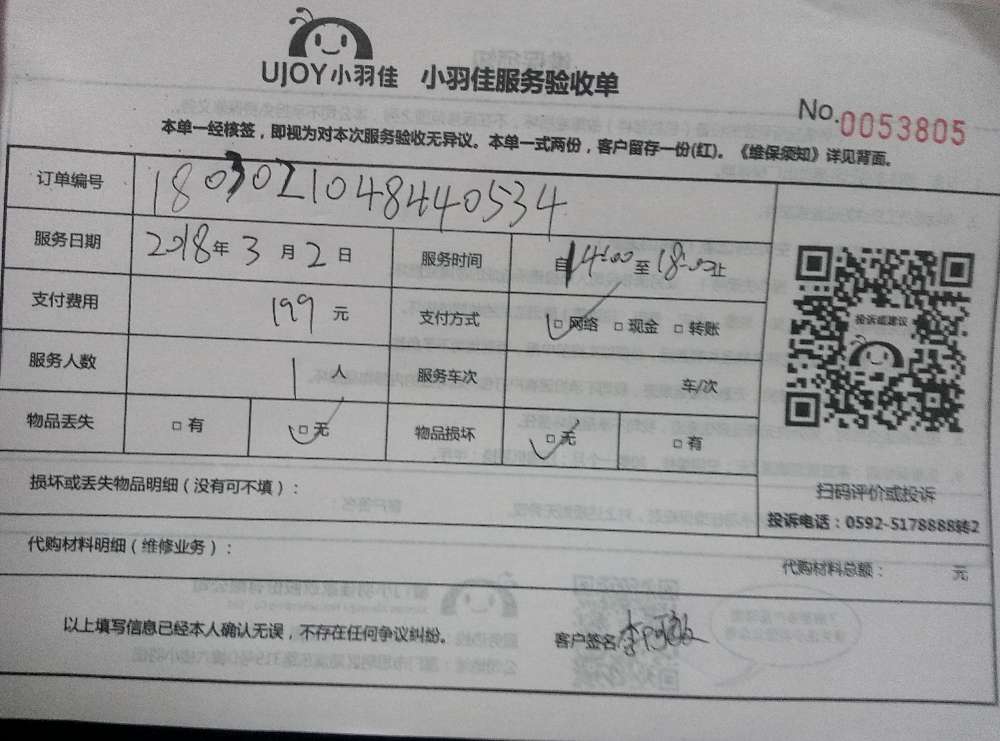 UJOY小羽佳 小羽佳服务验收单
No.0053805
本单一经核签，即视为对本次服务验收无异议。本单一式两份，客户留存一份(红)。《维保须知》详见背面。
订单编号 1803021048440534
服务日期 2018年 3 月 2 日 服务时间 自 14:00 至 18:00 止
支付费用 199 元 支付方式 □网络 □现金 □转账
服务人数 1 人 服务车次 车/次
物品丢失 □有 □无 物品损坏 □无 □有
投诉或建议
扫码评价或投诉
投诉电话：0592-5178888转2
损坏或丢失物品明细（没有可不填）：
代购材料明细（维修业务）：
代购材料总额： 元
以上填写信息已经本人确认无误，不存在任何争议纠纷。 客户签名